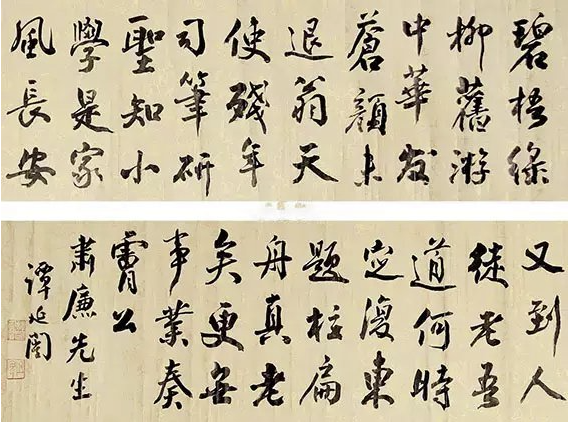 碧梧綠
柳舊游
中華发
蒼顏未
退翁天
使殘年
司筆研
聖知小
學是家
風長安
又到人
徒老吾
道何時
定復東
題柱扁
舟真老
矣更無
事業奏
膚公
肅廉先生
譚延闓